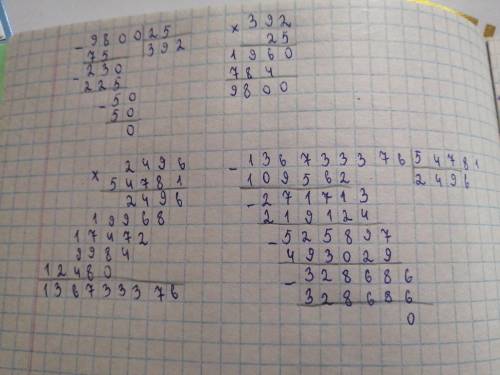 - 9800 | 25
75 | 392
- 230
225
- 50
50
0
× 392
25
1960
784
9800
× 2496
54781
2496
19968
17472
9984
12480
136733376
- 136733376 | 54781
109562 | 2496
- 271713
219124
- 525897
493029
- 328686
328686
0